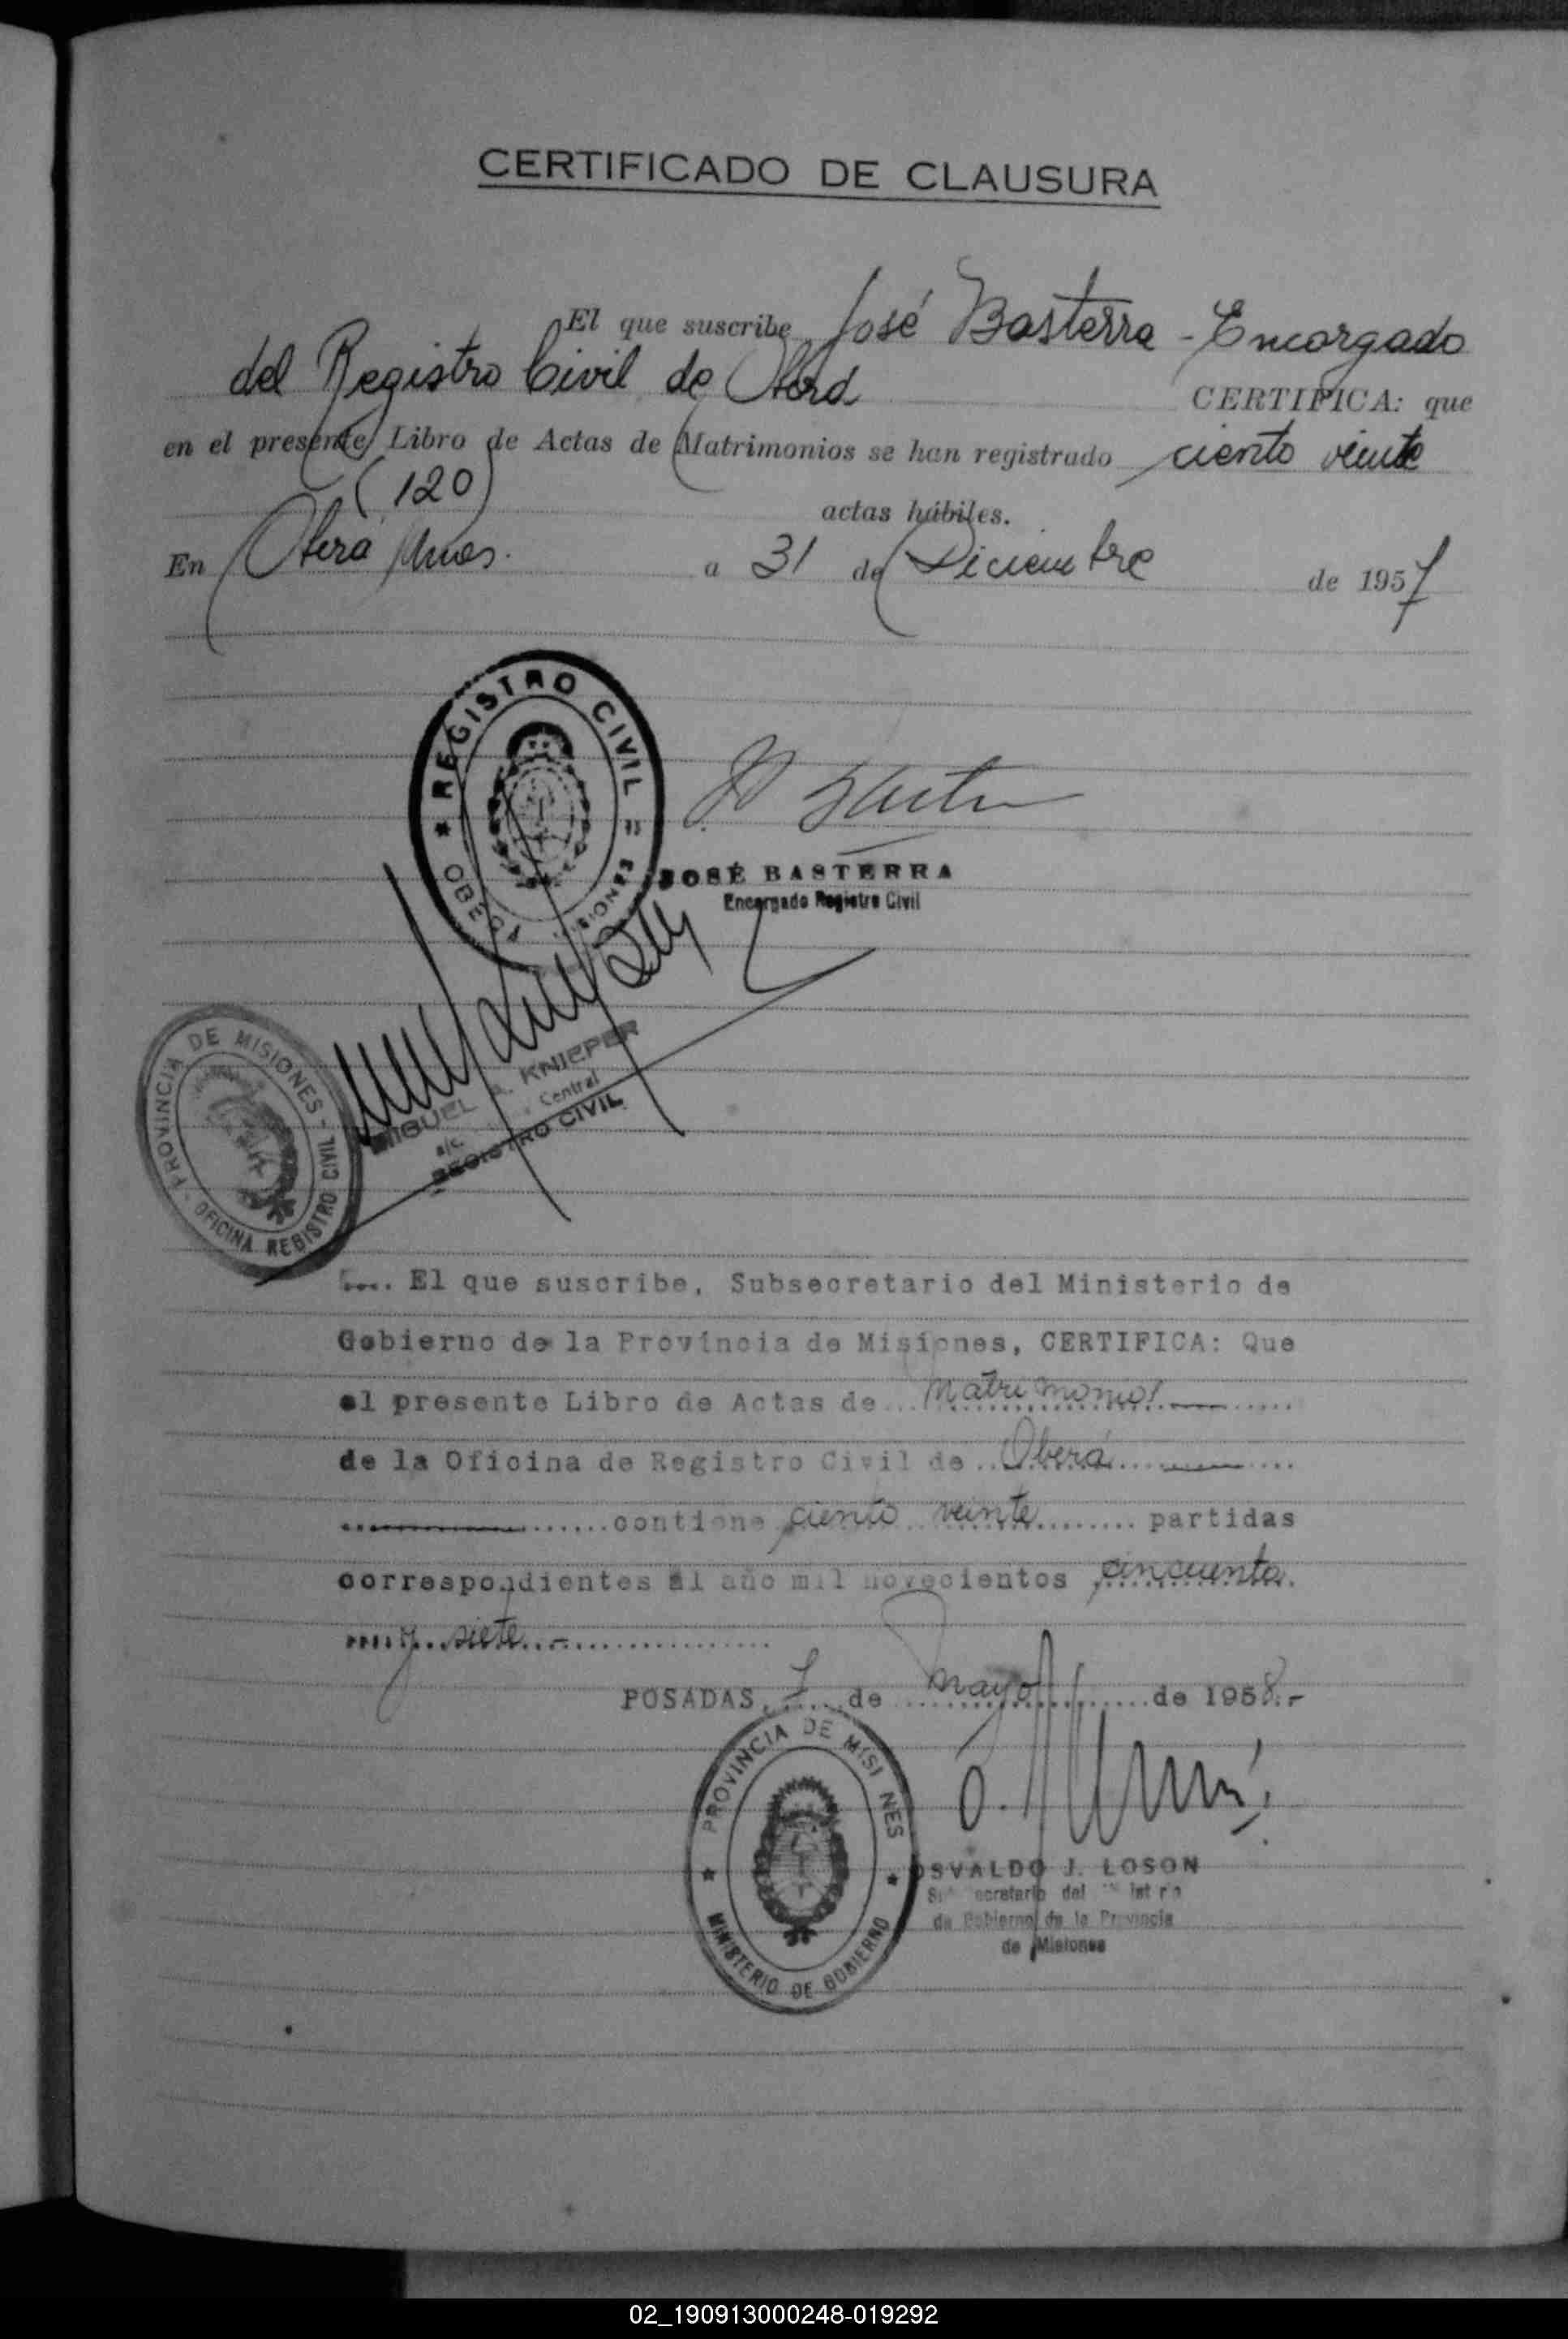 CERTIFICADO DE CLAUSURA
El que suscribe José Basterra - Encargado
del Registro Civil de Oberá CERTIFICA: que
en el presente Libro de Actas de Matrimonios se han registrado ciento veinte
(120) actas hábiles.
En Oberá Mnes. a 31 de Diciembre de 1957
REGISTRO CIVIL
OBERA MISIONES
JOSÉ BASTERRA
Encargado Registro Civil
PROVINCIA DE MISIONES -
OFICINA REGISTRO CIVIL
MIGUEL A. KNIEPER
a/c. Central
REGISTRO CIVIL
El que suscribe, Subsecretario del Ministerio de
Gobierno de la Provincia de Misiones, CERTIFICA: Que
el presente Libro de Actas de matrimonios
de la Oficina de Registro Civil de Oberá
contiene ciento veinte partidas
correspondientes al año mil novecientos cincuenta
y siete
POSADAS, 7 de mayo de 1958.-
PROVINCIA DE MISI NES
MINISTERIO DE GOBIERNO
OSVALDO J. LOSON
Subsecretario del Ministerio
de Gobierno de la Provincia
de Misiones
02_190913000248-019292